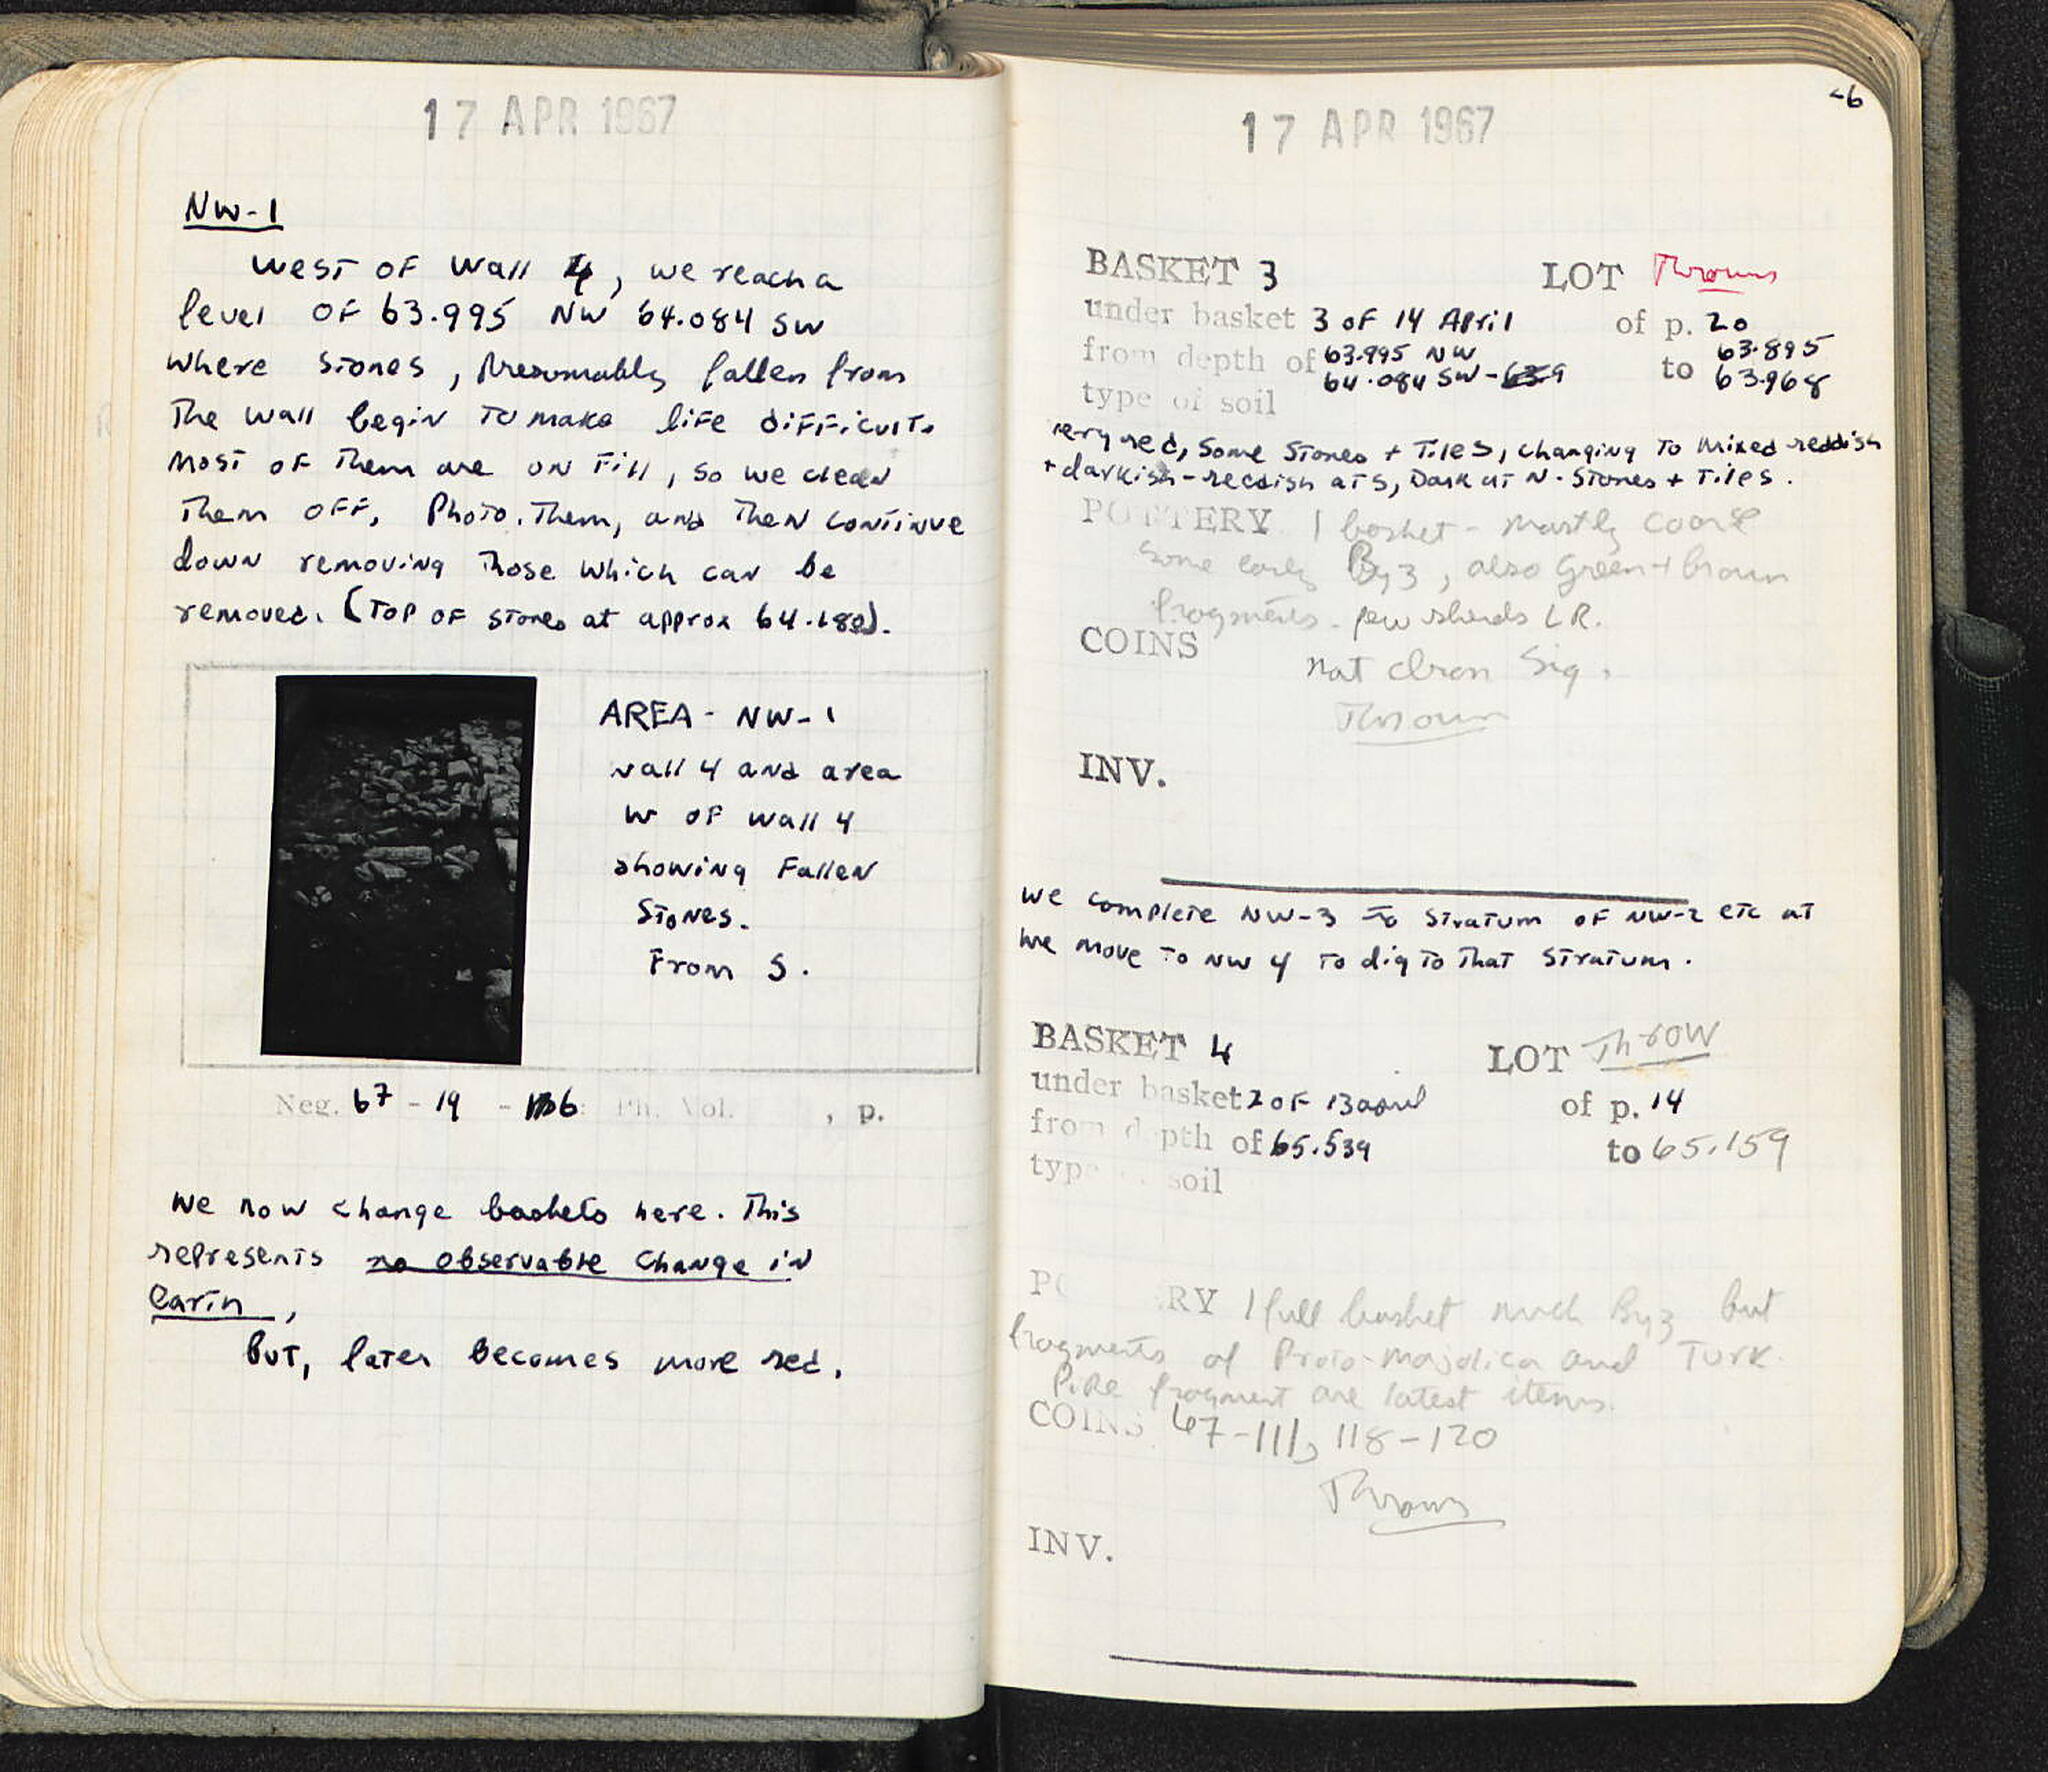 17 APR 1967
NW-1
West of Wall 4, we reach a
level of 63.995 NW 64.084 SW
where stones, presumably fallen from
the wall begin to make life difficult.
Most of them are on fill, so we clean
them off, photo. them, and then continue
down removing those which can be
removed. (Top of stones at approx 64.180).
AREA - NW-1
Wall 4 and area
W of Wall 4
showing fallen
stones.
From S.
Neg. 67 - 19 - 6: Ph. Vol. , p.
We now change baskets here. This
represents no observable change in
earth,
But, later becomes more red.
17 APR 1967
26
BASKET 3 LOT Thrown
under basket 3 of 14 April of p. 20
from depth of 63.995 NW 64.084 SW to 63.895 63.968
type of soil
very red, some stones + tiles, changing to mixed reddish
+ darkish-reddish at S, Dark at N. Stones + tiles.
POTTERY 1 basket - mostly coarse
some early Byz, also Green + brown
fragments - few sherds LR.
COINS
not chron sig.
Thrown
INV.
We complete NW-3 to stratum of NW-2 etc at
We move to NW 4 to dig to that stratum.
BASKET 4 LOT Throw
under basket 2 of 13 april of p. 14
from depth of 65.539 to 65.159
type soil
POTTERY 1 full basket much Byz but
fragments of Proto-majolica and Turk.
Pipe fragment are latest items.
COINS 67-111, 118-120
Thrown
INV.